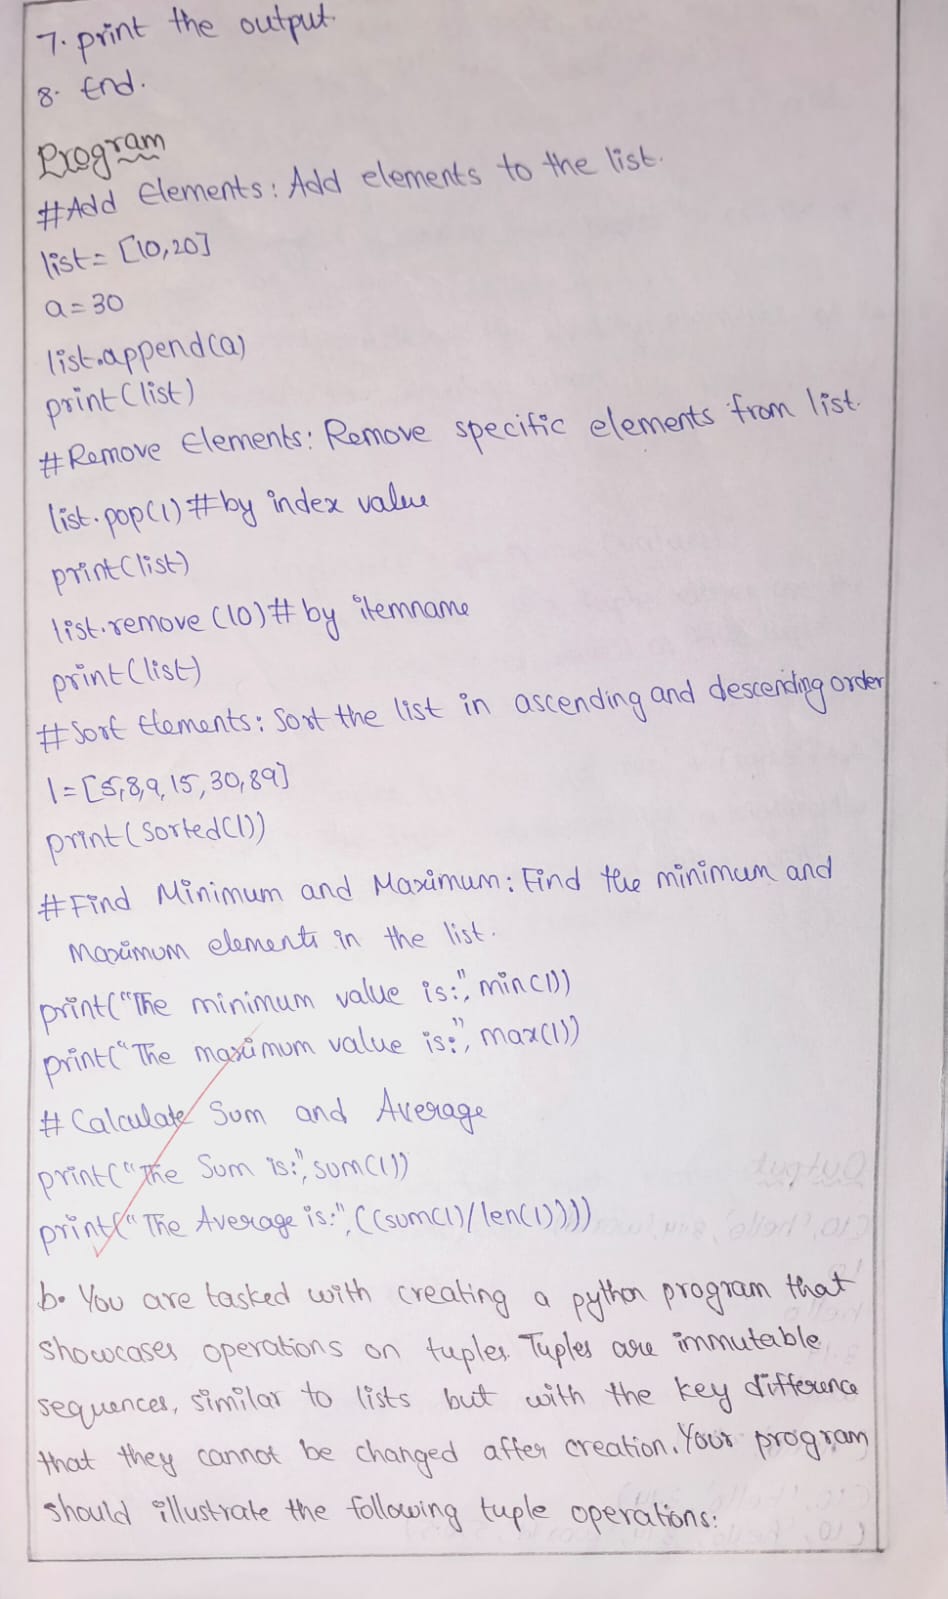 7. print the output.
8. End.
Program
#Add Elements: Add elements to the list.
list= [10,20]
a=30
list.append(a)
print(list)
#Remove Elements: Remove specific elements from list.
list.pop(1)#by index value
print(list)
list.remove(10)# by itemname
print(list)
#Sort Elements: Sort the list in ascending and descending order
l=[5,8,9,15,30,89]
print(sorted(l))
#Find Minimum and Maximum: Find the minimum and
Maximum elements in the list.
print("The minimum value is:", min(l))
print("The maximum value is:", max(l))
# Calculate Sum and Average
print("The Sum is:", sum(l))
print("The Average is:", ((sum(l)/len(l))))
b. You are tasked with creating a python program that
showcases operations on tuples. Tuples are immutable
sequences, similar to lists but with the key difference
that they cannot be changed after creation. Your program
should illustrate the following tuple operations: